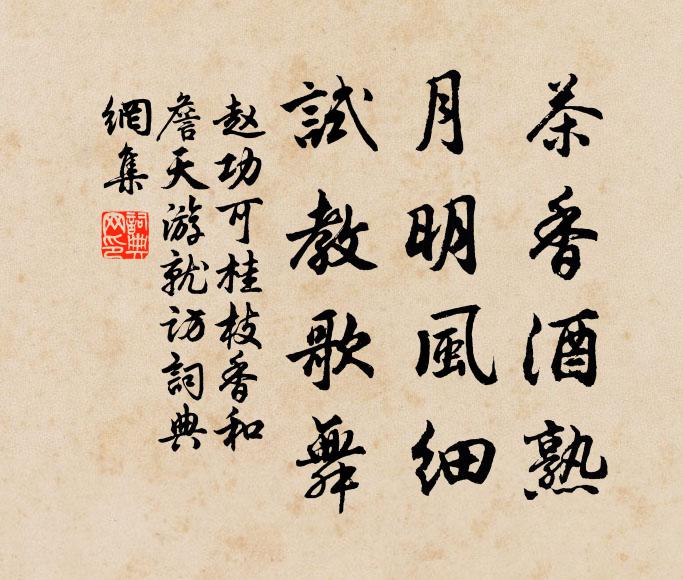 茶香酒熟
月明風细
試教歌舞
赵功可桂枝香和
詹天游就访詞典
網集
詞典
网印